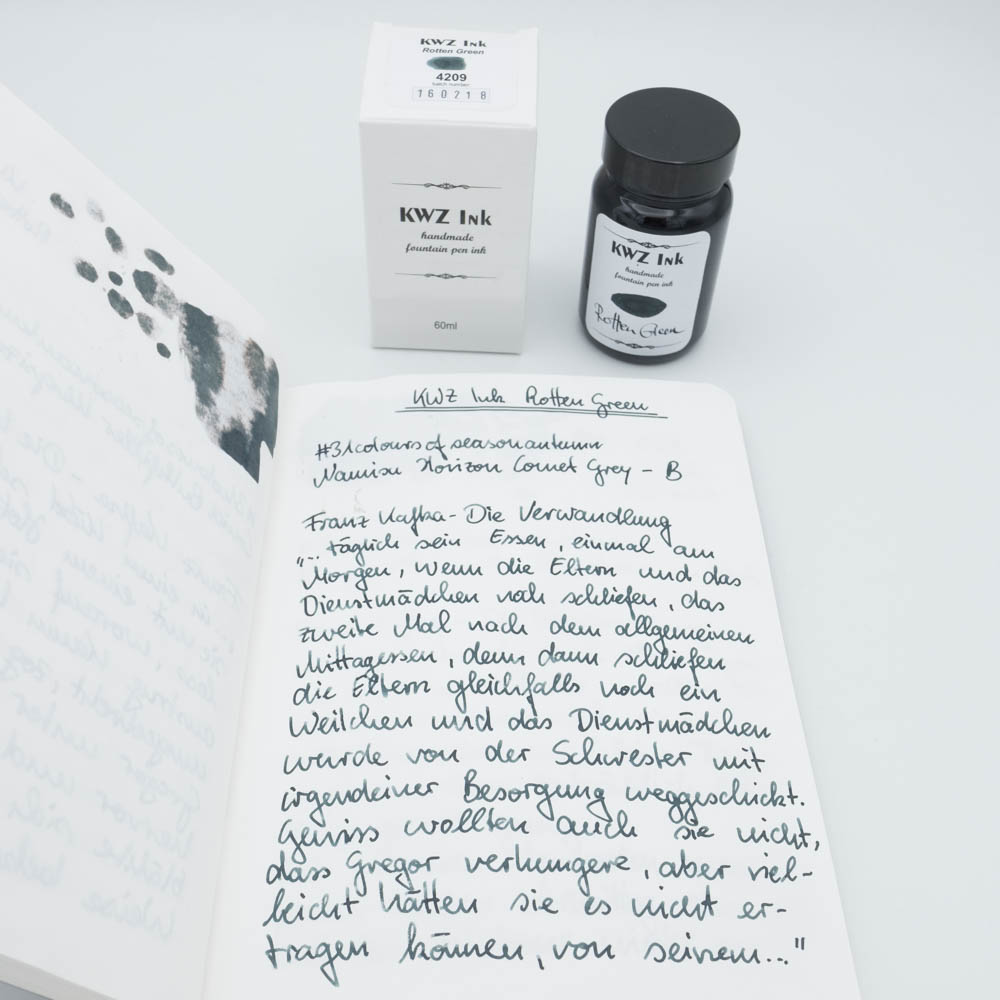 KWZ Ink
Rotten Green
4209
batch number
160218
KWZ Ink
handmade
fountain pen ink
60ml
KWZ Ink
handmade
fountain pen ink
Rotten Green
KWZ Ink Rotten Green
#31coloursofseasonautumn
Namisu Horizon Comet Grey - B
Franz Kafka - Die Verwandlung
"... täglich sein Essen, einmal am
Morgen, wenn die Eltern und das
Dienstmädchen noch schliefen, das
zweite Mal nach dem allgemeinen
Mittagessen, denn dann schliefen
die Eltern gleichfalls noch ein
Weilchen und das Dienstmädchen
wurde von der Schwester mit
irgendeiner Besorgung weggeschickt.
Gewiss wollten auch sie nicht,
dass Gregor verhungere, aber viel-
leicht hätten sie es nicht er-
tragen können, von seinem..."